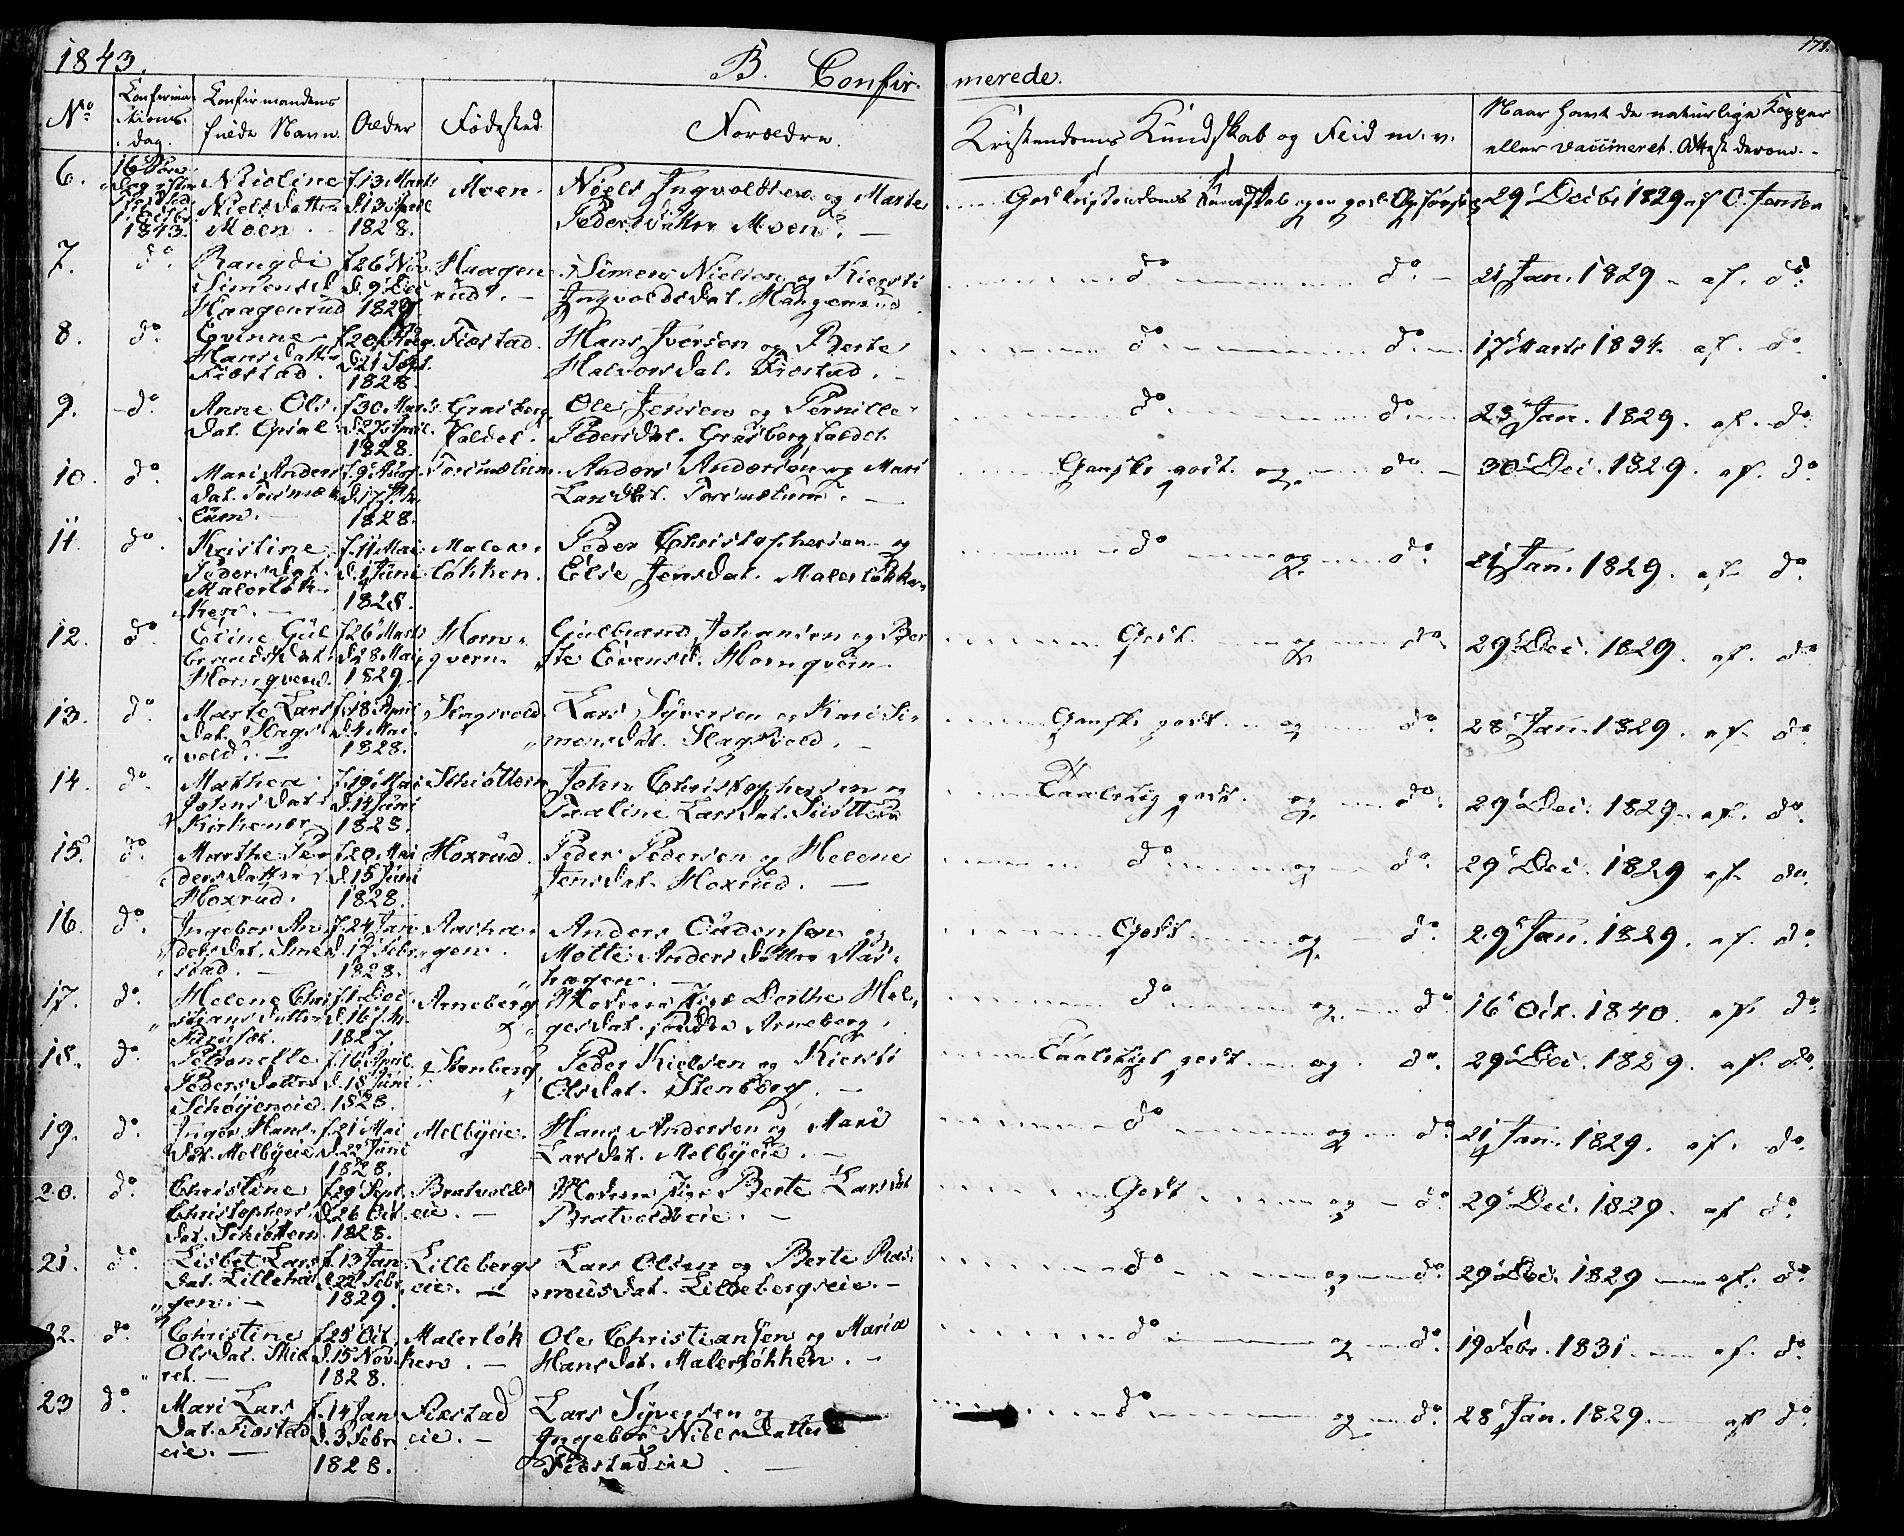 1843.
B. Confir-
merede.
No
Confirma-
tions-
dag.
Confirmandens
fulde Navn.
Alder
Fødested.
Forældre.
Kristendoms Kundskab og Flid m. v.
Naar havt de naturlige Kopper
eller vaccineret. Attest derom. -
6.
1843.
Nicoline
Niels Datter
Moen.
f. 13 Marts
d. 13 April
1828.
Moen.
Niels Ingvoldsen og Marte
Peders Datter Moen. -
God Kristendoms Kundskab og en god Opførsel
29 Decbr 1829 af C. Jensen
7.
do.
Rangdi
Simensd.
Haagenrud
f. 26 Nov.
d. 9 Dec
1829
Haagen-
rud. -
Simen Nielsen og Kiersti
Ingvoldsdat. Haagenrud
do do. -
21 Jan. 1829 - af. do.
8.
do.
Evinne
Hansdatter
Fiæstad.
f. 20 Aug.
d. 21 Sept.
1828.
Fiæstad.
Hans Iversen og Berte
Halvorsdat. Fiæstad. -
do. do.
17 Marts 1834. af. do.
9.
do.
Anne Ols-
dat. Opsal
f. 30 Marts
d. 27 April.
1828.
Grasberg
faldet.
Ole Jensen og Pernille
Pedersdat. Grasbergfaldet.
do. do.
23 Jan. 1829. af. do.
10.
do.
Mari Anders
dat.
lum. -
f. 9 Aug.
1828.
Anders Andersen og Mari
Larsdat.
Ganske godt. og do. -
30 Dec. 1829. af. do.
11.
do.
Kristine
Pedersdat.
Malerløk-
ken. -
f. 11 Mai
d. 1 Juni
1828.
Maler-
løkken.
Peder Christophersen og
Else Jensdat. Malerløkken
do og do.
21 Jan. 1829. af do.
12.
do.
Eline Gul
brandsdat.
Hornqvern.
f. 26 Marts
d. 28 Mai
1829.
Horn-
qvern.
Gulbrand Johansen og Ber
te Evensd. Hornqvern.
Godt. og do.
29 Dec. 1829. af. do
13.
do.
Marte Lars
dat. Slags
vold. -
f. 18 April
d. 4 Mai.
1828.
Slagsvold.
Lars Syversen og Kari Si-
mensdat. Slagsvold. -
Ganske godt. og do.
28 Jan. 1829. af. do.
14.
do.
Mathea
Johnsdat.
Kirkenær
f. 19 Mai
d. 14 Juni
1828.
Schiøttern
John Christophersen og
Pauline Larsdat. Siøttern
Taalelig godt. og do.
29 Dec. 1829. af. do.
15.
do.
Marthe Pe-
dersdatter
Hoxrud.
f. 20 Mai
d. 15 Juni
1828.
Hoxrud.
Peder Pedersen og Helene
Jensdat. Hoxrud. -
do. og do.
29 Dec. 1829 af do.
16.
do.
Ingebor An-
dersdat.
stad. -
f. 24 Jan
1828.
Aasha-
gen.
Anders Audensen og
Molle Anders Datter Aas-
hagen. -
Godt og do.
29 Jan. 1829. af. do.
17.
do.
Helene Chri
stians Datter
f. 1 Dec
1827.
Arneberg
Moderen Pige Dorthe Hel-
gesdat. Arneberg.
do og do.
16 Oct. 1840. af. do.
18.
do.
Petronelle
Peders Datter
Schøyeneie.
f. 16 April
d. 15 Juni
1828.
Stenberg
Peder Kielsen og Kiersti
Olsdat. Stenberg. -
Taaleligt godt og do.
29 Dec. 1829. af. do.
19.
do.
Inger Hans-
dat. Melbyeie
f. 21 Mai
d. 22 Juni
1828.
Melbyeie.
Hans Andersen og Mari
Larsdat. Melbyeie. -
do og do.
21 Jan. 1829. af. do.
20.
do.
Christine
Christophers-
dat. Schiøttern
f. 29 Sept.
d. 26 Oct.
1828.
Bratvolds
eie. -
Moderen Pige Berte Larsdat
Bratvoldseie. -
Godt og do.
29 Dec. 1829. af do.
21.
do.
Lisbet Lars
dat. Lilleha
gen. -
f. 13 Jan
d. 22 Febr
1829.
Lillebergs
eie. -
Lars Olsen og Berte Ras-
musdat. Lillebergseie. -
do og do.
29 Dec. 1829 af. do.
22.
do.
Christine
Olsdat.
ret. -
f. 25 Oct.
d. 15 Nov.
1828.
Malerløk
ken. -
Ole Christiansen og Maria
Hansdat. Malerløkken. -
do og do.
19 Febr. 1831. af. do.
23
do.
Mari Lars
dat. Fiæstad
eie. -
f. 14 Jan
d. 3 Febr
1828.
Fiæstad
eie. -
Lars Syversen og
Ingebor Niels Datter
Fiæstadeie. -
do og do.
28 Jan. 1829. af do.